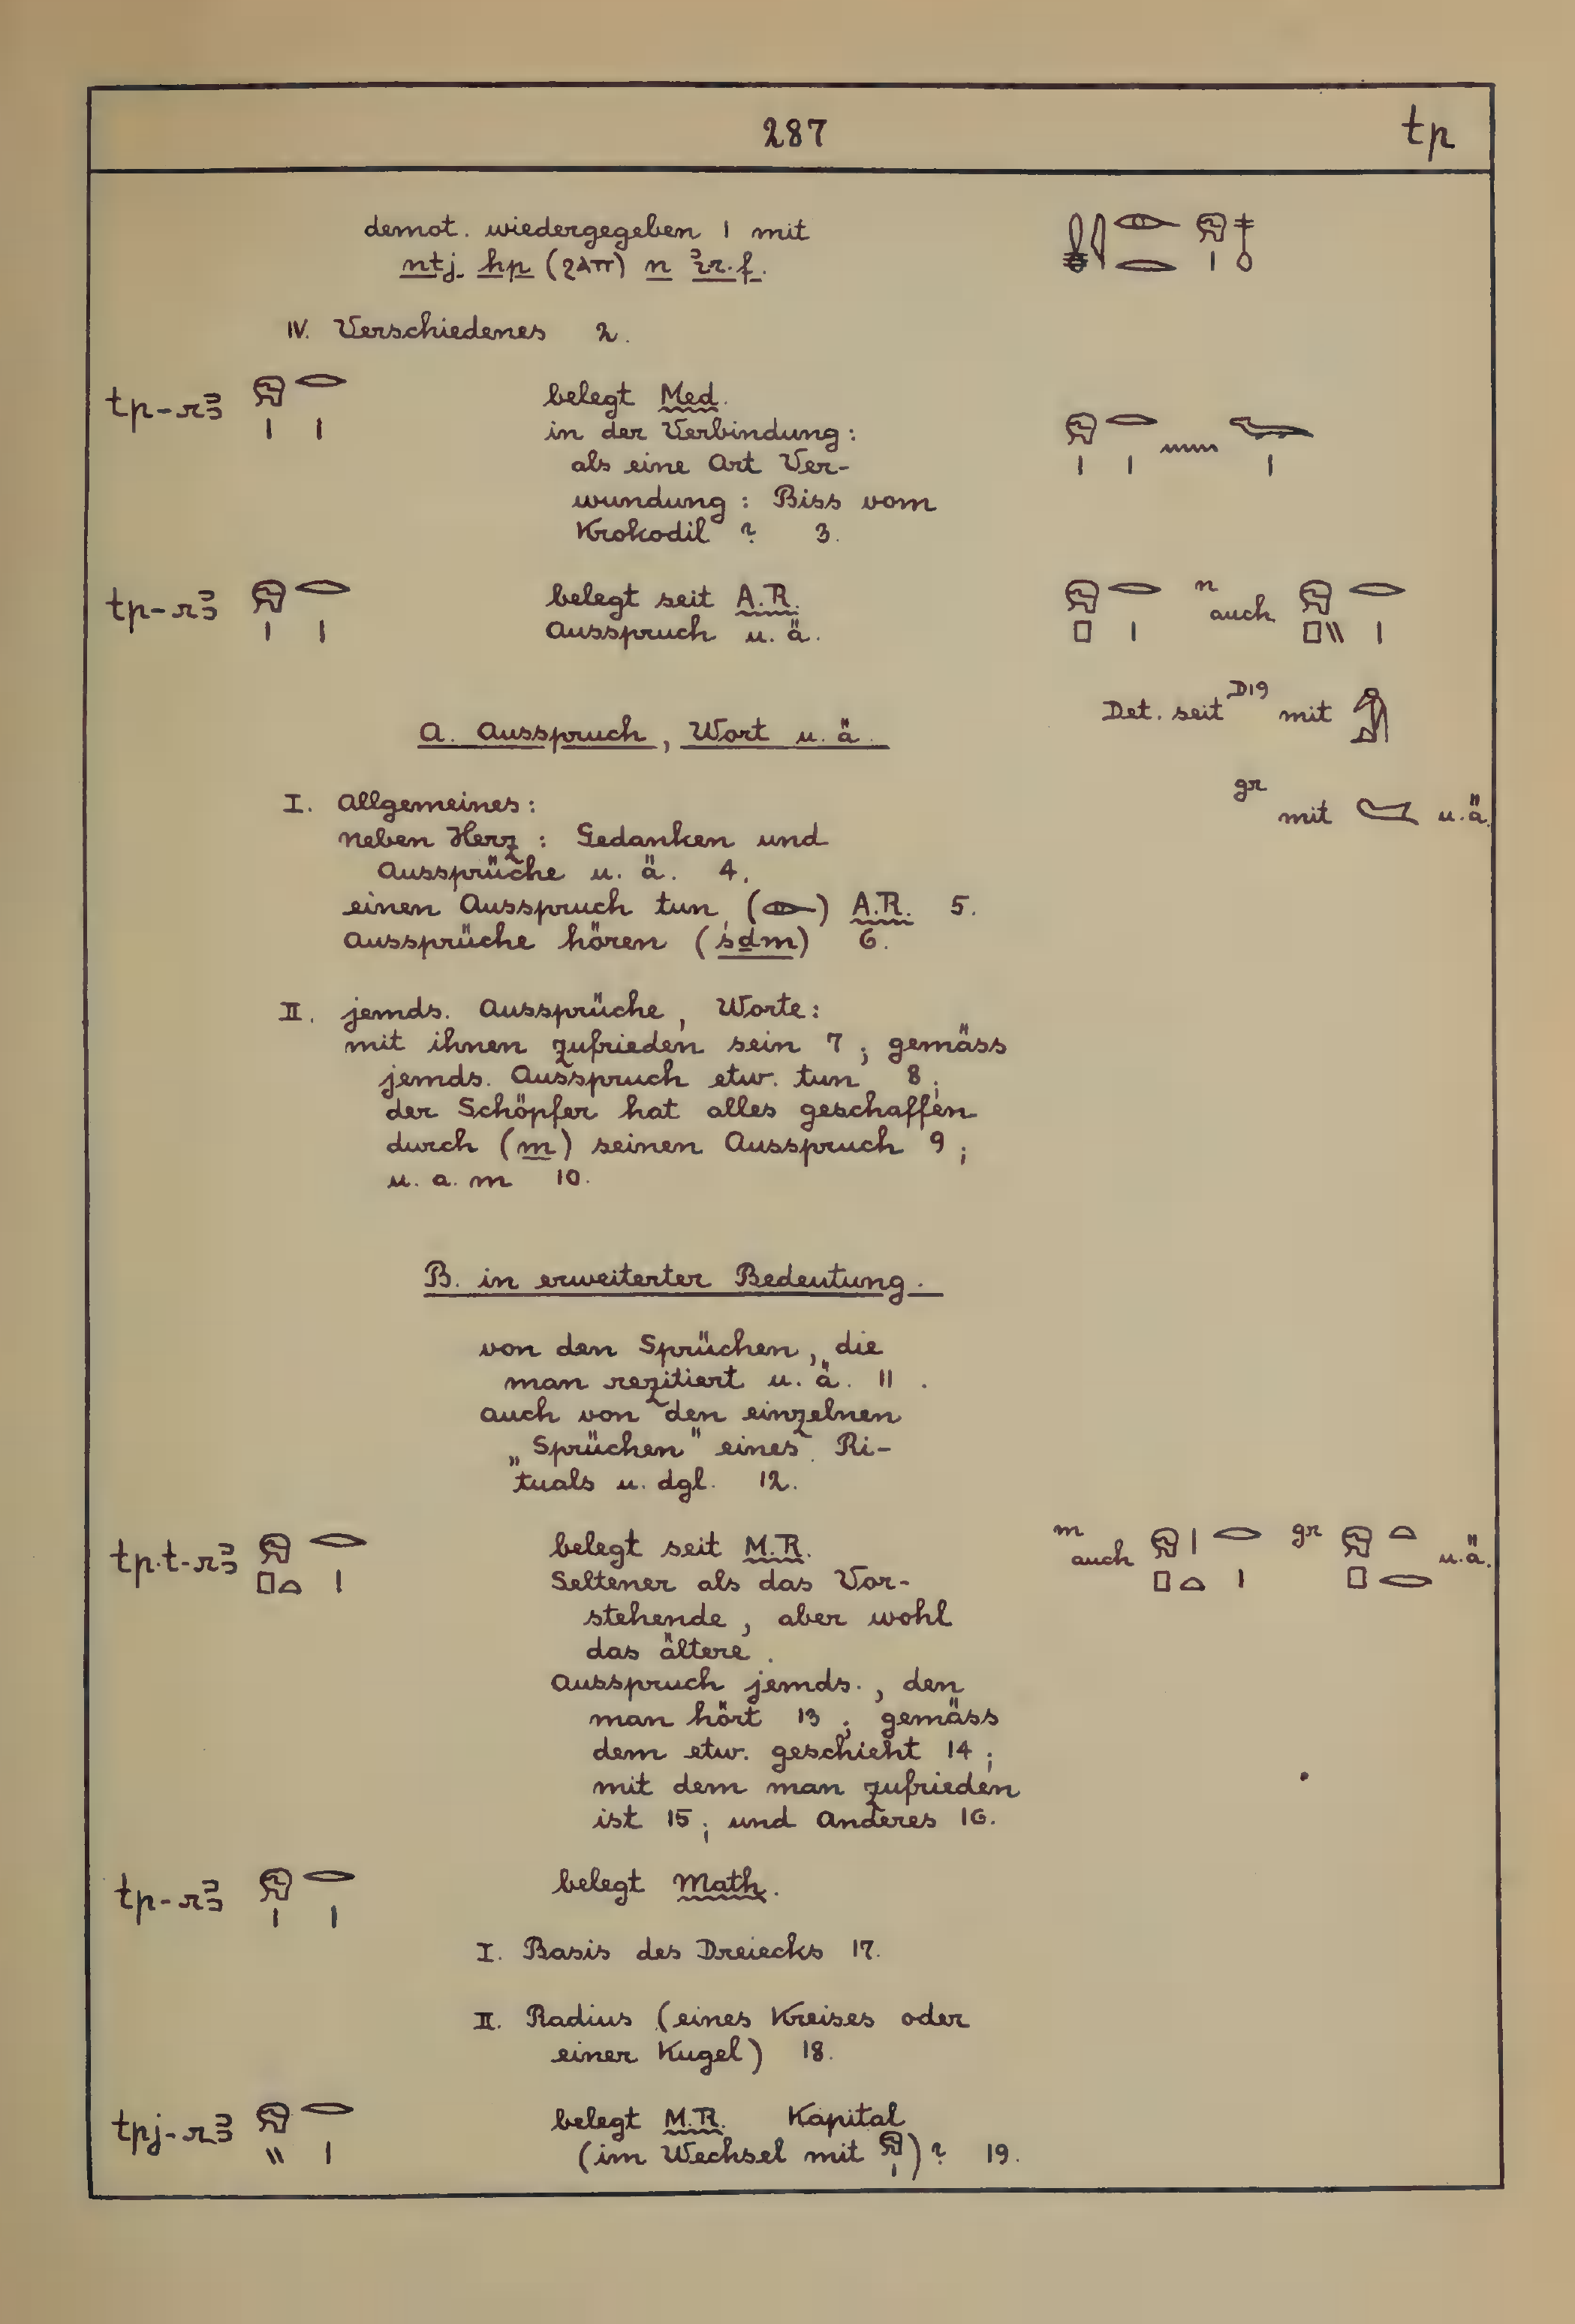 287 tp
demot. wiedergegeben 1 mit
ntj hp (ϩⲁⲡ) n ꜣir.f.
IV. Verschiedenes 2.
tp-rꜣ 𓁶𓏤𓂋𓏤 belegt Med.
in der Verbindung: 𓁶𓏤𓂋𓏤𓈖𓆊𓏤
als eine Art Ver-
wundung: Biss vom
Krokodil ? 3.
tp-rꜣ 𓁶𓏤𓂋𓏤 belegt seit A.R. 𓁶𓊪𓂋𓏤 n auch 𓁶𓊪𓏭𓂋𓏤
Ausspruch u. ä.
Det. seit D19 mit 𓀁
A. Ausspruch, Wort u. ä.
gr mit 𓄹 u.ä.
I. Allgemeines:
neben Herz: Gedanken und
Aussprüche u. ä. 4.
einen Ausspruch tun (𓁹) A.R. 5.
Aussprüche hören (śḏm) 6.
II. jemds. Aussprüche, Worte:
mit ihnen zufrieden sein 7; gemäss
jemds. Ausspruch etw. tun 8;
der Schöpfer hat alles geschaffen
durch (m) seinen Ausspruch 9;
u. a. m 10.
B. in erweiterter Bedeutung.
von den Sprüchen, die
man rezitiert u. ä. 11.
auch von den einzelnen
„Sprüchen" eines Ri-
tuals u. dgl. 12.
tp.t-rꜣ 𓁶𓂋𓊪𓏏𓏤 belegt seit M.R. m auch 𓁶𓏤𓊪𓏏𓂋𓏤 gr 𓁶𓏏𓊪𓂋 u.ä.
Seltener als das Vor-
stehende, aber wohl
das ältere.
Ausspruch jemds., den
man hört 13; gemäss
dem etw. geschieht 14;
mit dem man zufrieden
ist 15; und Anderes 16.
tp-rꜣ 𓁶𓏤𓂋𓏤 belegt Math.
I. Basis des Dreiecks 17.
II. Radius (eines Kreises oder
einer Kugel) 18.
tpj-rꜣ 𓁶𓏭𓂋𓏤 belegt M.R. Kapital
(im Wechsel mit 𓁶𓏤)? 19.